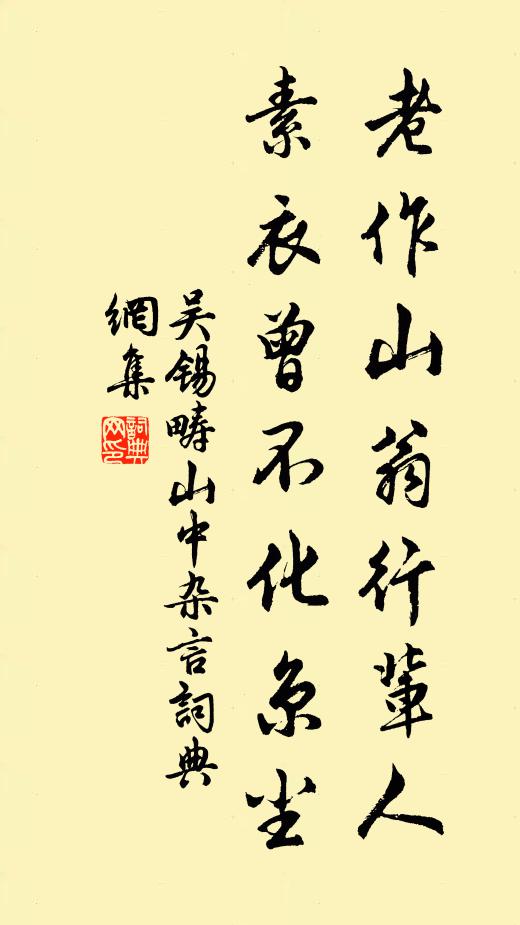 老作山翁行輩人
素衣曾不化京尘
吴錫畴山中杂言詞典
網集
詞典
网印